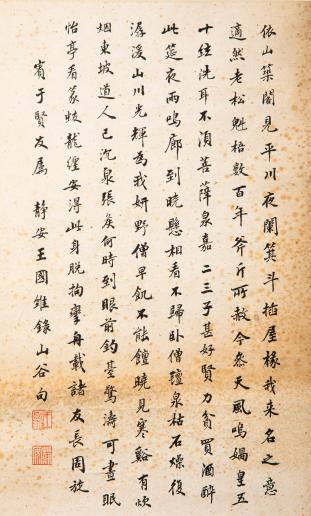 依山築閣見平川夜闌箕斗插屋椽我來名之意
適然老松魁梧數百年斧斤所赦今參天風鳴媧皇五
十絃洗耳不須菩薩泉嘉二三子甚好賢力貧買酒醉
此筵夜雨鳴廊到曉懸相看不歸臥僧氈泉枯石燥復
潺湲山川光輝為我妍野僧早飢不能饘曉見寒谿有炊
烟東坡道人已沉泉張矦何時到眼前釣臺驚濤可晝眠
怡亭看篆蛟龍纏安得此身脫拘攣舟載諸友長周旋
賓于賢友屬 靜安王國維錄山谷句